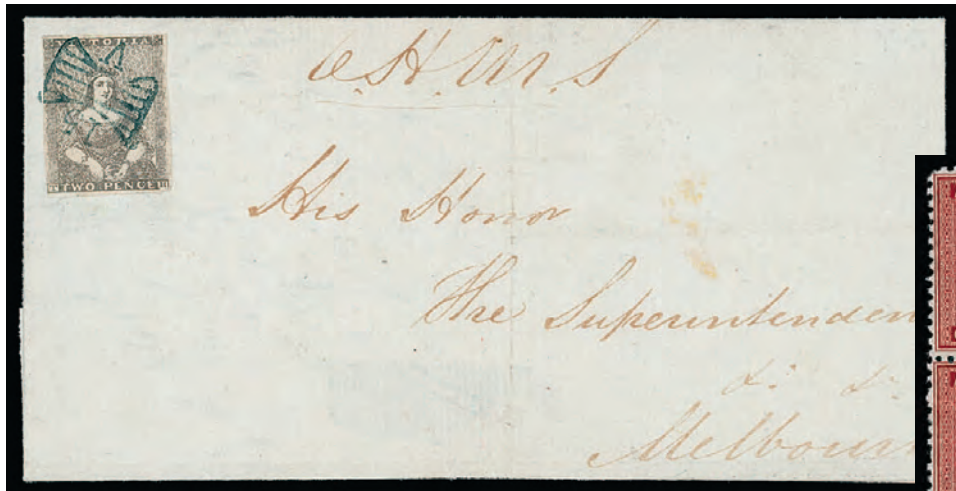 VICTORIA
TWO PENCE
O.H.M.S
His Honor
The Superintenden
&c &c
Melbourn